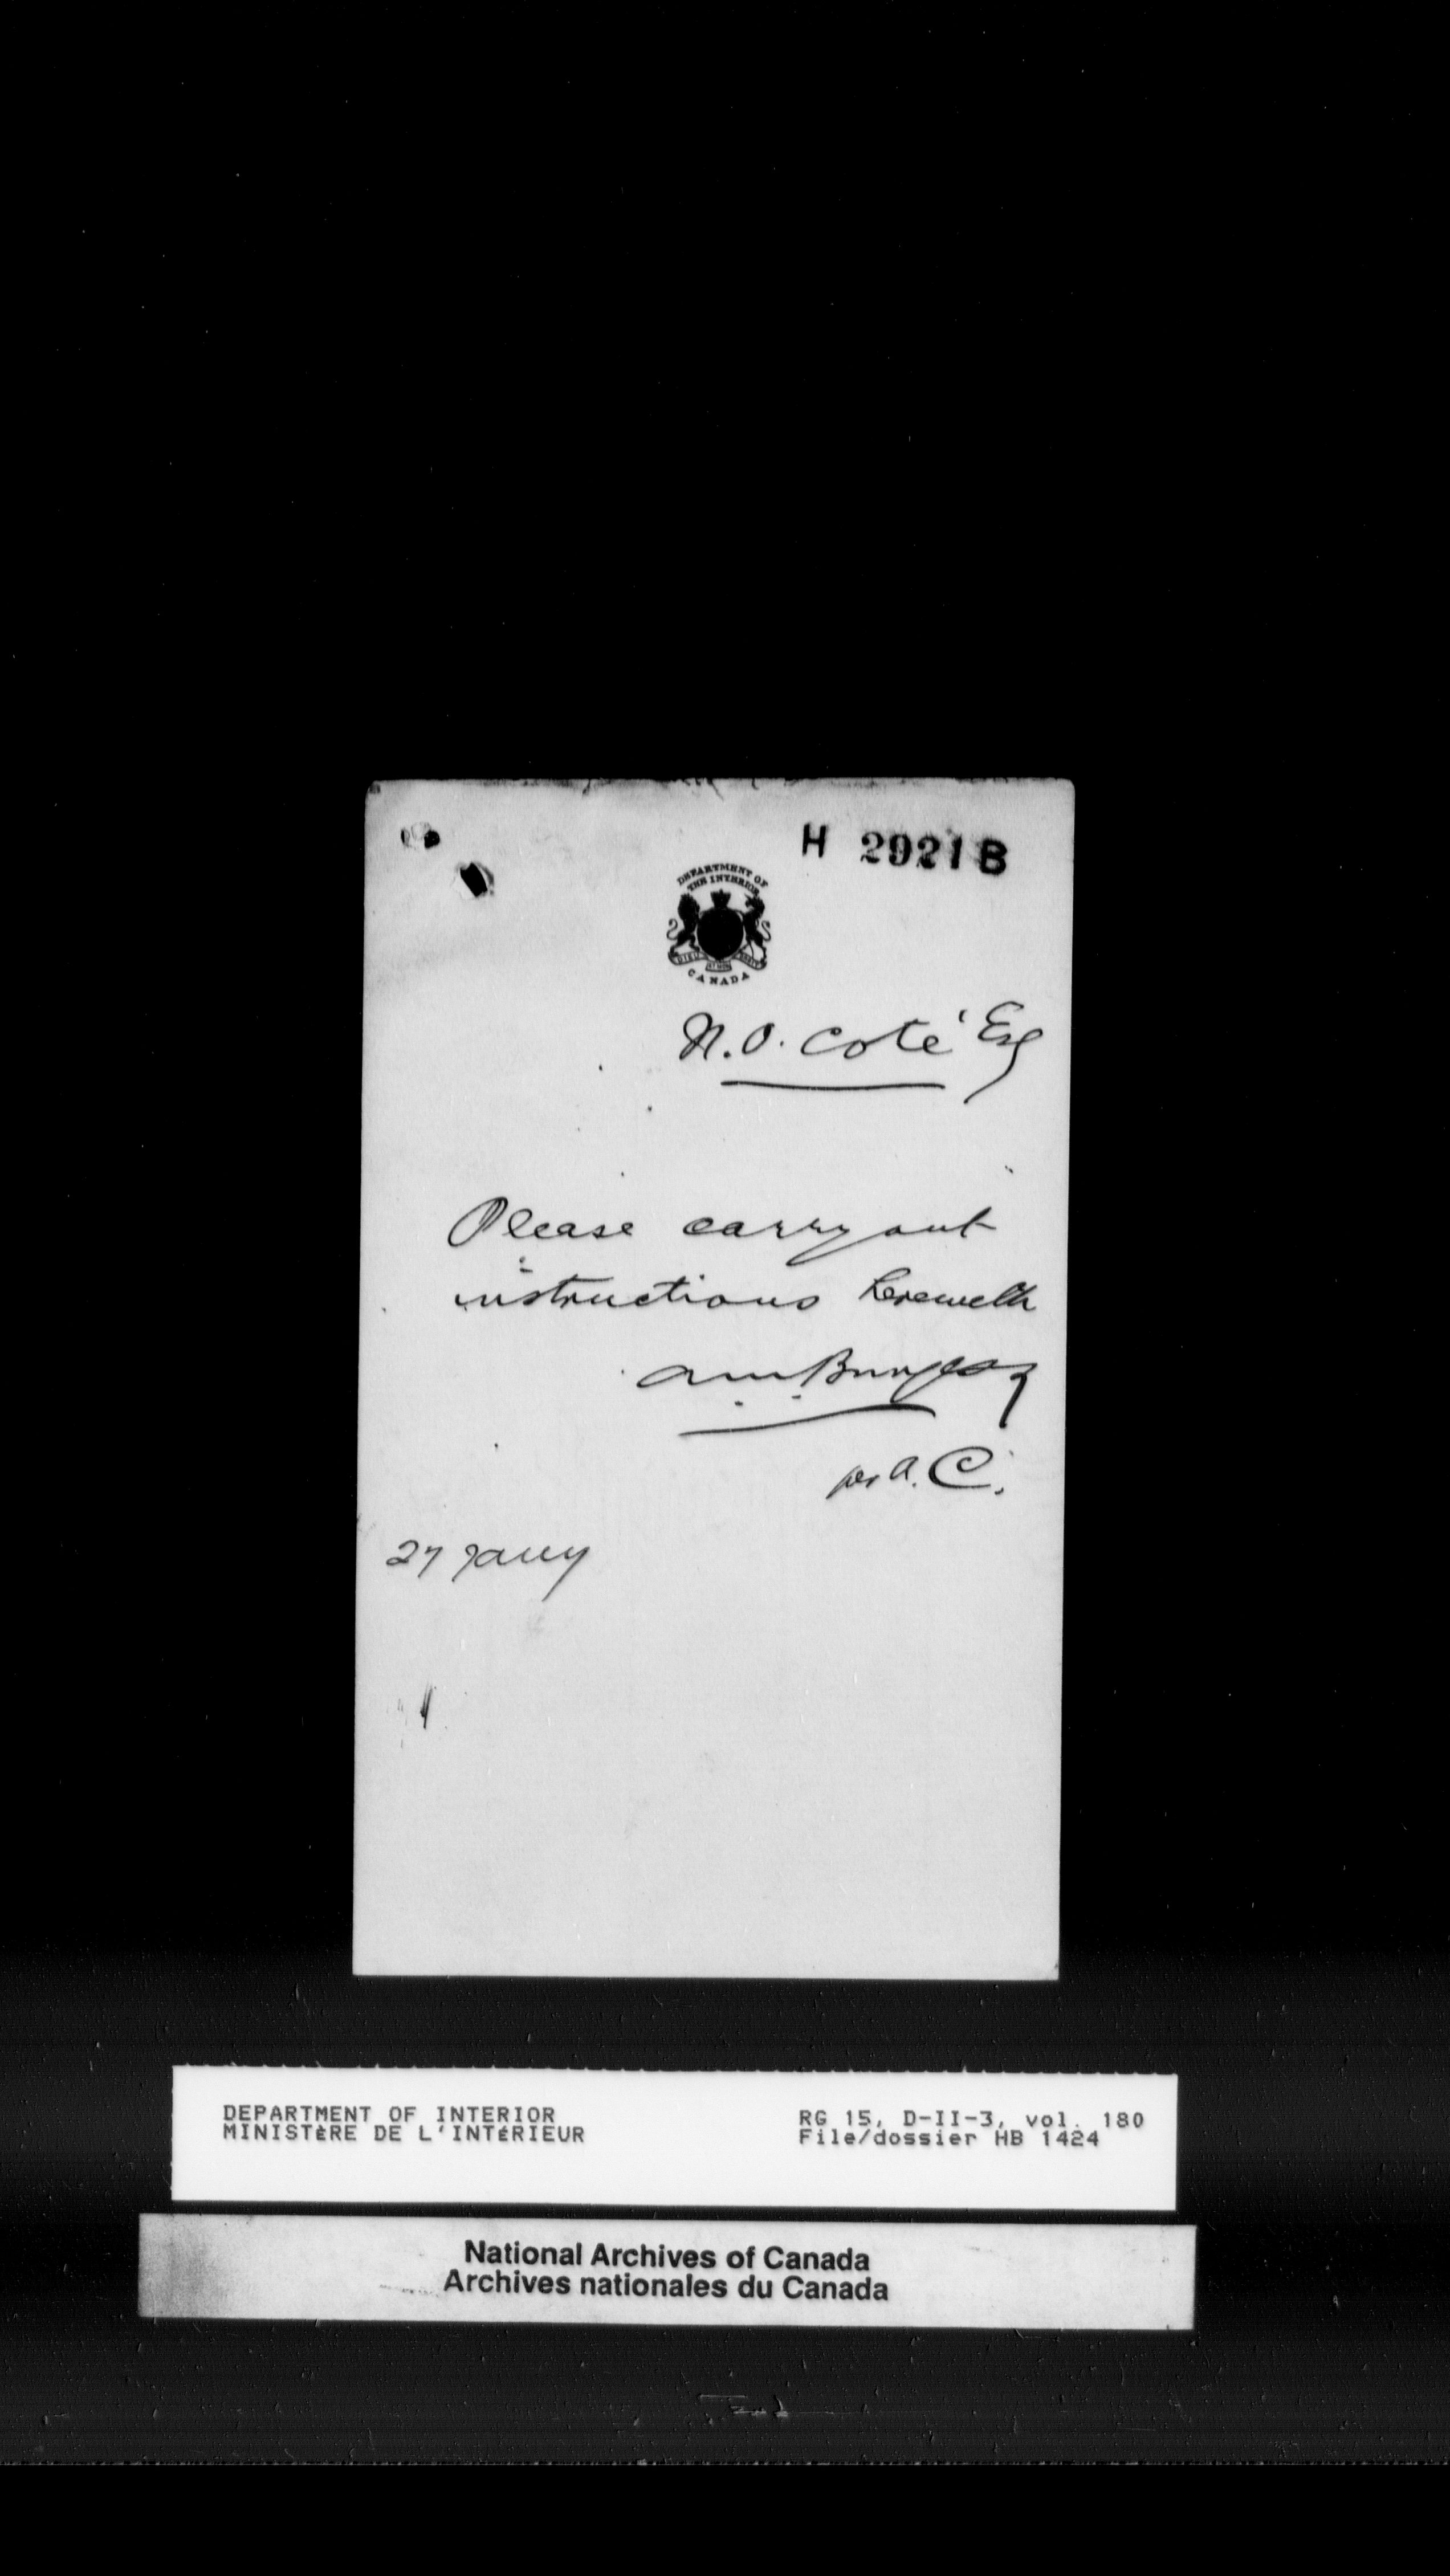 H 2921 B
DEPARTMENT OF
THE INTERIOR
CANADA
N.O. Coté Esq
Please carry out
instructions herewith
A.M. Burgess
per A.C.
27 Jany
DEPARTMENT OF INTERIOR
MINISTÈRE DE L'INTÉRIEUR
RG 15, D-II-3, vol. 180
File/dossier HB 1424
National Archives of Canada
Archives nationales du Canada